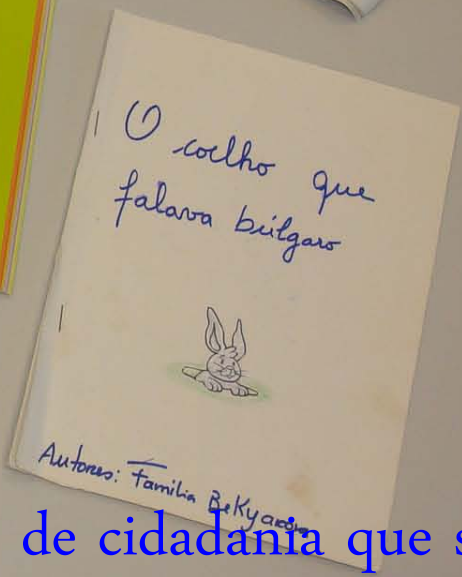 O coelho que
falava búlgaro
Autores: Família Bekyarova
de cidadania que s